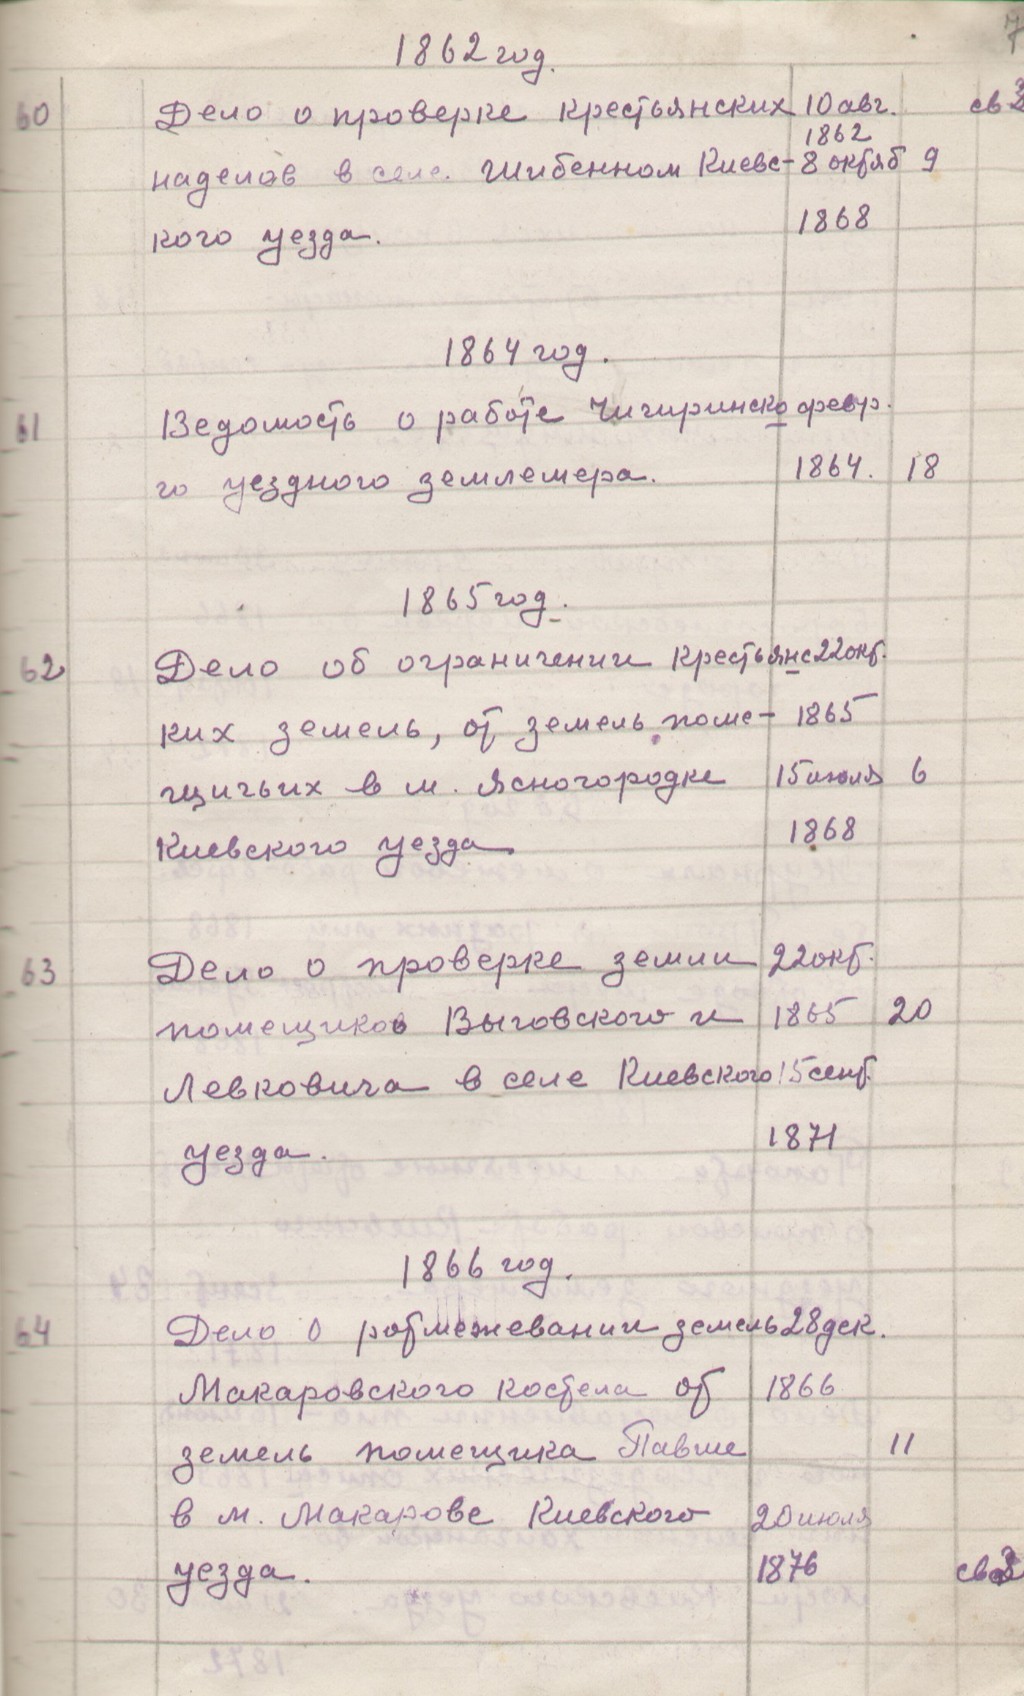 7
1862 год.
60 Дело о проверке крестьянских 10 авг. св 3
1862
наделов в селе. Шибенном Киевс- 8 октяб 9
кого уезда. 1868
1864 год.
61 Ведомость о работе Чигиринско февр.
го уездного землемера. 1864. 18
1865 год.
62 Дело об ограничении крестьянс 22 окт.
ких земель, от земель поме- 1865
щичьих в м. Ясногородке 15 июля 6
Киевского уезда 1868
63 Дело о проверке земли 22 окт.
помещиков Выговского и 1865 20
Левковича в селе Киевского 15 сент.
уезда. 1871
1866 год.
64 Дело о размежевании земель 28 дек.
Макаровского костела от 1866
земель помещика Павше 11
в м. Макарове Киевского 20 июля
уезда. 1876 св 3